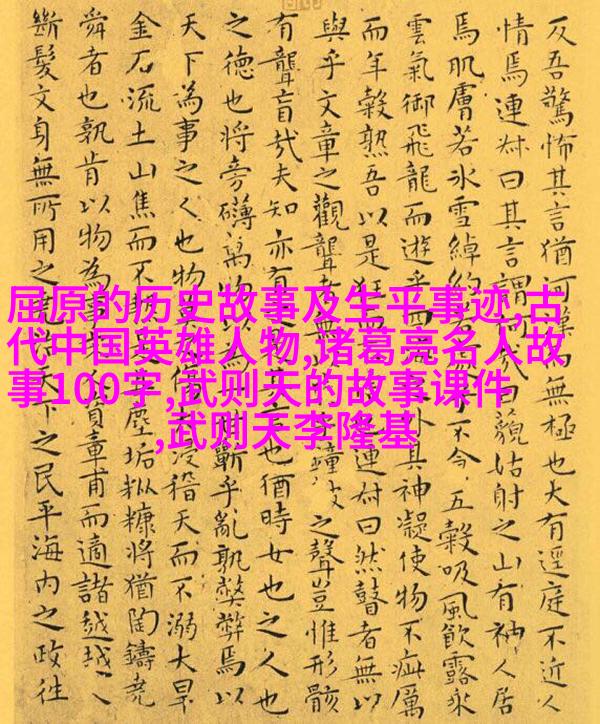 反吾驚怖其言猶河漢無極也大有逕庭不近人
情焉連叔曰其言謂何曰藐姑射之山有神人居
焉肌膚若冰雪綽約不五穀吸風飲露乘
雲氣御飛龍而遊乎四外其神凝使物不疵厲
而年穀熟吾以是狂連叔曰然瞽者無以
與乎文章之觀聾者無以鐘之聲豈惟形骸
有聾盲哉夫知亦有也猶時女也之人也
之德也將旁礴萬物以蘄乎亂孰弊弊焉以
天下為事之人也物莫傷浸稽天而不溺大旱
金石流土山焦而不熱是塵垢粃糠將猶陶鑄堯
舜者也孰肯以物為事資章甫而適諸越越
斷髮文身無所用之堯治天下之民平海內之政往
屈原的历史故事及生平事迹,古
代中国英雄人物,诸葛亮名人故
事100字,武则天的故事课件
,武则天李隆基